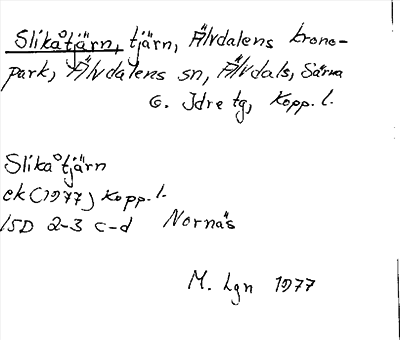 Slikåtjärn, tjärn, Älvdalens krono-
park, Älvdalens sn, Älvdals, Särna
o. Idre tg, Kopp. l.
Slikåtjärn
ek (1977) Kopp. l.
15D 2-3 c-d Nornäs
M. Lgn 1977